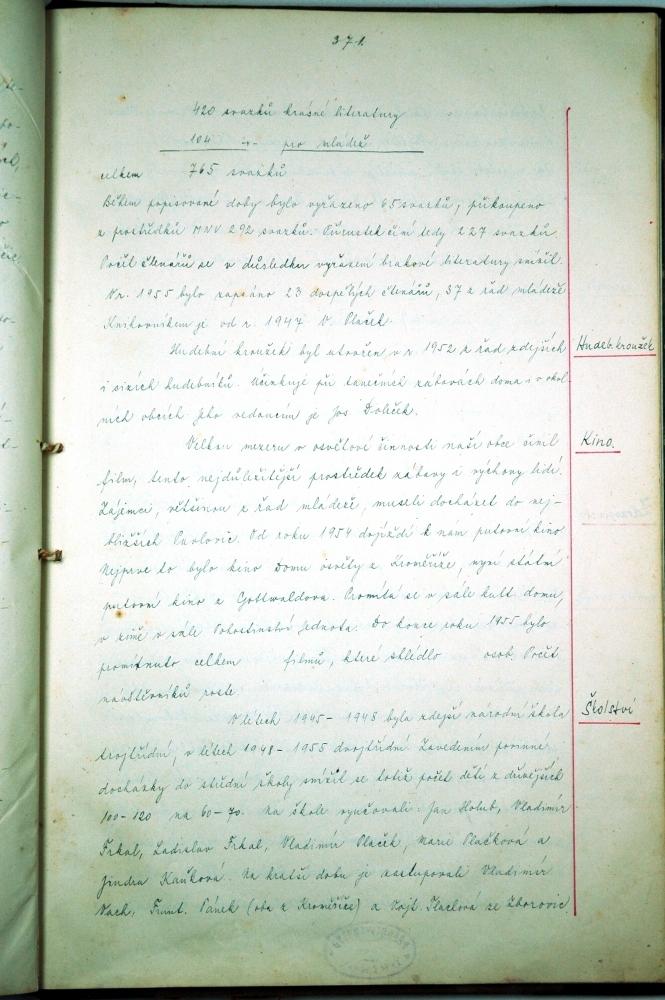 371.
420 svazků krásné literatury
104 -"- pro mládež
celkem 765 svazků
Během popisované doby bylo vyřazeno 65 svazků, přikoupeno
z prostředků MNV 292 svazků. Přírustek činí tedy 227 svazků.
Počet čtenářů se v důsledku vyřazení brakové literatury snížil.
V r. 1955 bylo zapsáno 23 dospělých čtenářů, 37 z řad mládeže
Knihovníkem je od r. 1947 V. Plaček.
Hudeb. kroužek
Hudební kroužek byl utvořen v r. 1952 z řad zdejších
i cizích hudebníků. Účinkuje při tanečních zábavách doma i v okol
ních obcích. Jeho vedoucím je Jos. Doleček.
Kino.
Velkou mezeru v osvětové činnosti naší obce činil
film, tento nejdůležitější prostředek zábavy i výchovy lidí.
Zájemci, většinou z řad mládeže, museli docházet do nej-
bližších. Od roku 1954 dojíždí k nám putovní kino
Nejprve to bylo kino Domu osvěty z Kroměříže, nyní státní
putovní kino z Gottwaldova. Promítá se v sále kult. domu,
v zimě v sále Pohostinství Jednota. Do konce roku 1955 bylo
promítnuto celkem filmů, které shlédlo osob. Počet
návštěvníků roste.
Školství
V létech 1945 - 1948 byla zdejší národní škola
trojtřídní, v létech 1948 - 1955 dvojtřídní. Zavedením povinné
docházky do střední školy snížil se totiž počet dětí z dřívějších
100-120 na 60-70. Na škole vyučovali: Jan Holub, Vladimír
Frkal, Ladislav Frkal, Vladimír Plaček, Marie Plačková a
Jindra Kaňková. Na kratší dobu je zastupovali Vladimír
Vach, Frant. Pánek (oba z Kroměříže) a Vojt. ze Zborovic